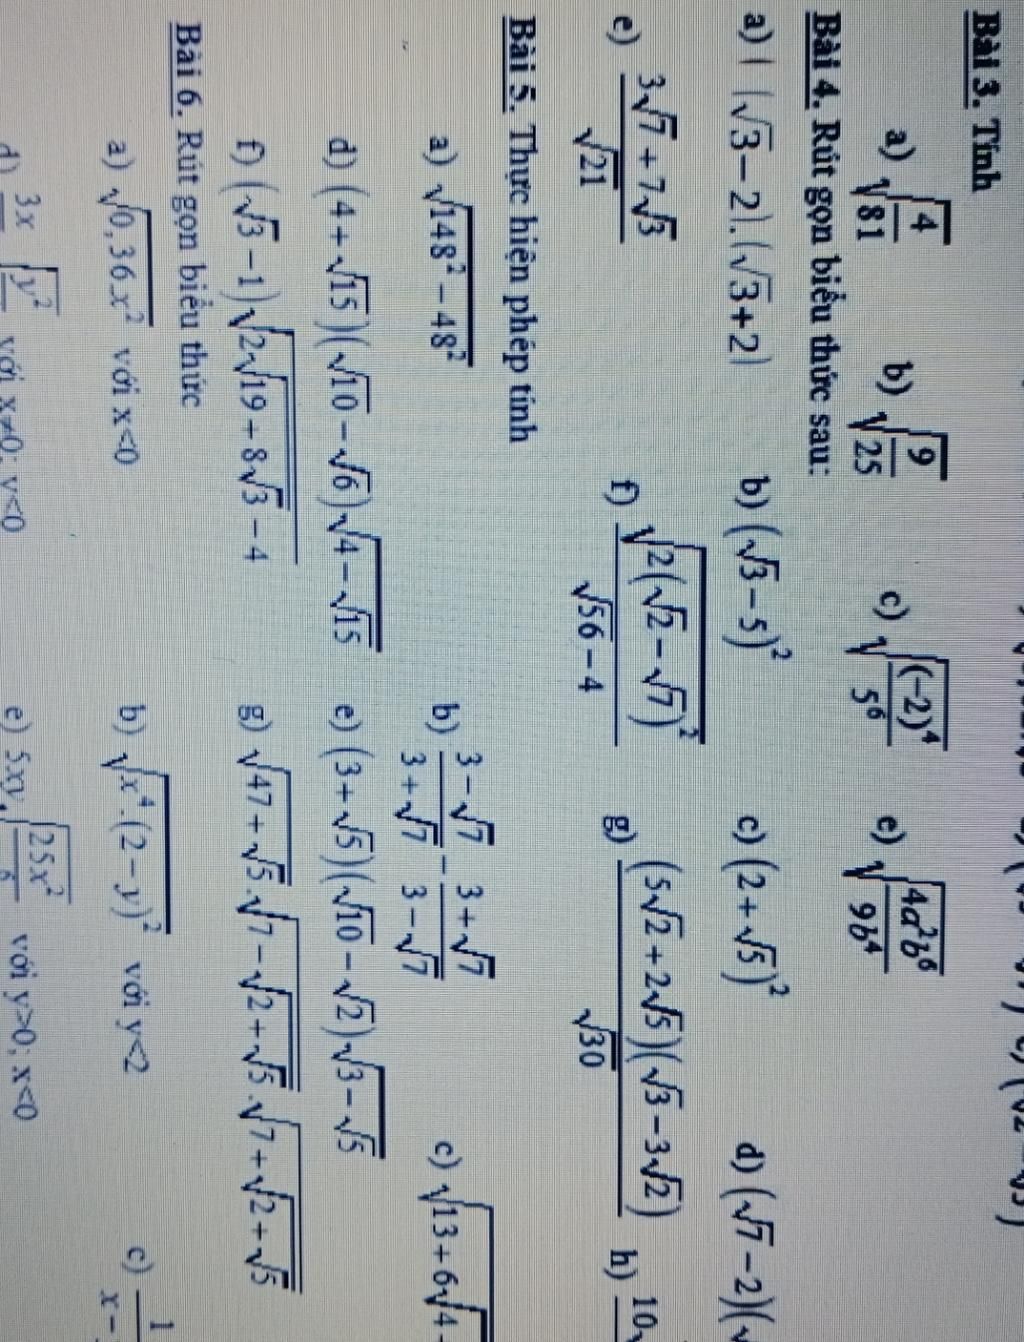 Bài 3. Tính
a) √(4/81) b) √(9/25) c) √((−2)⁴/5⁶) e) √(4a²b⁶/9b⁴)
Bài 4. Rút gọn biểu thức sau:
a) (√3−2).(√3+2) b) (√3−5)² c) (2+√5)² d) (√7−2)(
e) (3√7+7√3)/√21 f) √(2(√2−√7)²)/(√56−4) g) (5√2+2√5)(√3−3√2)/√30 h) 10
Bài 5. Thực hiện phép tính
a) √(148²−48²) b) (3−√7)/(3+√7) − (3+√7)/(3−√7) c) √(13+6√4
d) (4+√15)(√10−√6)√(4−√15) e) (3+√5)(√10−√2)√(3−√5)
f) (√3−1)√(2√(19+8√3)−4) g) √(47+√5).√(7−√(2+√5)).√(7+√(2+√5))
Bài 6. Rút gọn biểu thức
a) √(0,36x²) với x<0 b) √(x⁴.(2−y)²) với y<2 c) 1 x−
d) 3x √y² với x≠0; y<0 e) 5xy.√25x² với y>0; x<0